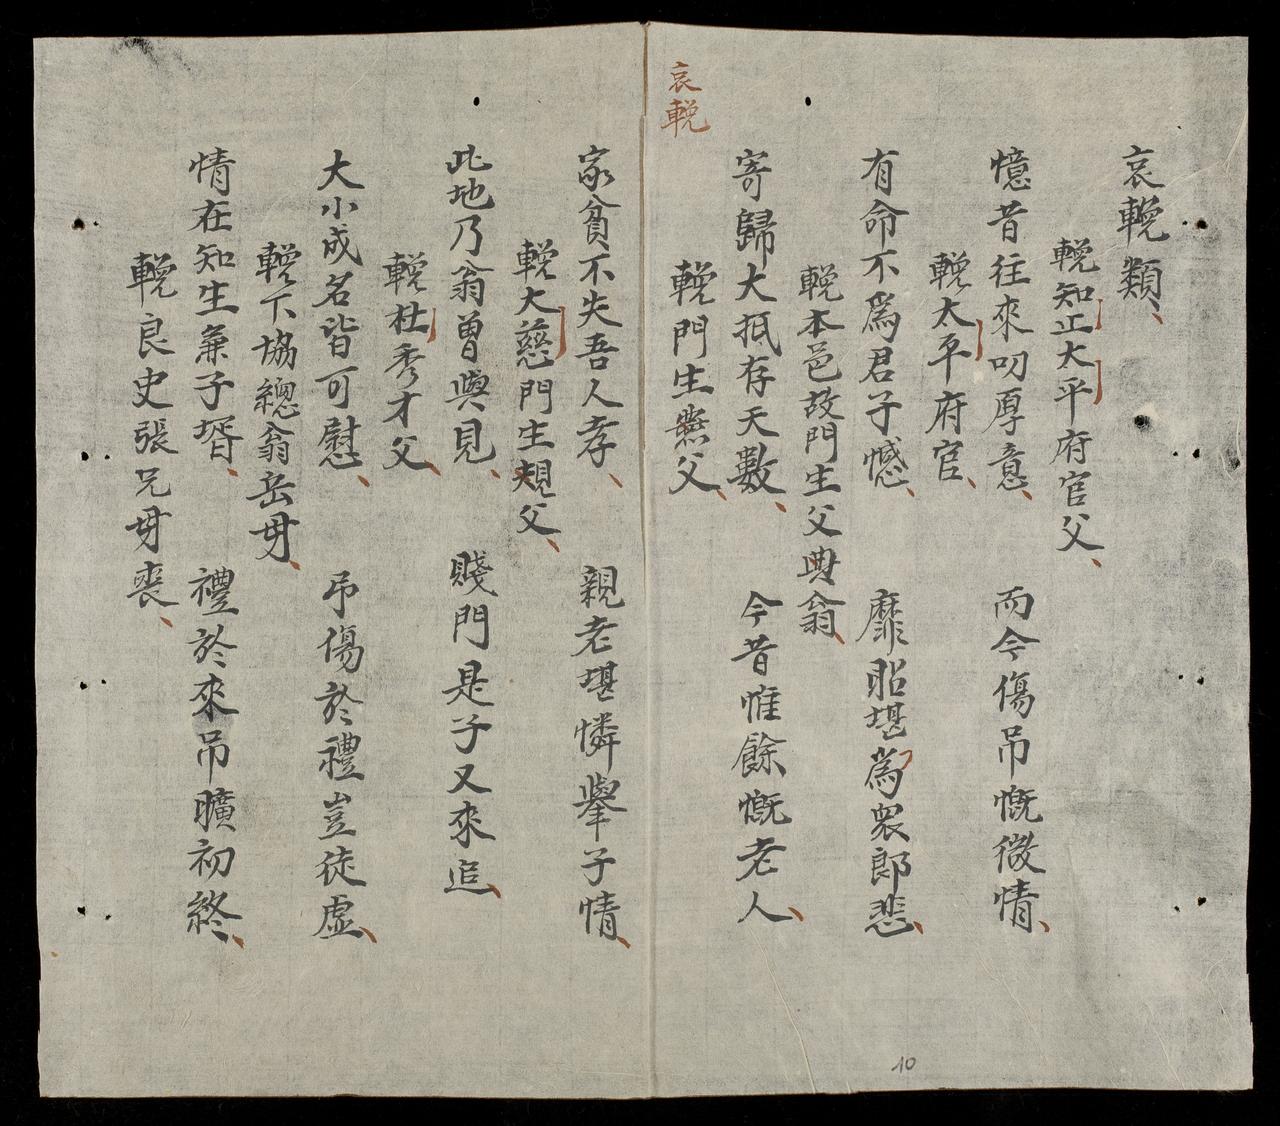 哀輓
哀輓類
輓知正大平府官父
憶昔往來叨厚意
而今傷吊慨微情
輓太平府官
有命不爲君子憾
靡貽堪爲衆郎悲
輓本邑故門生父典翁
寄歸大抵存天數
今昔惟餘慨老人
輓門生無父
家貧不失吾人孝
親老堪憐舉子情
輓大慈門生規父
此地乃翁曾與見
賤門是子又來追
輓杜秀才父
大小成名皆可慰
吊傷於禮豈徒虛
輓下協總翁岳毋
情在知生兼子壻
禮於來吊曠初終
輓良史張兄毋喪
10